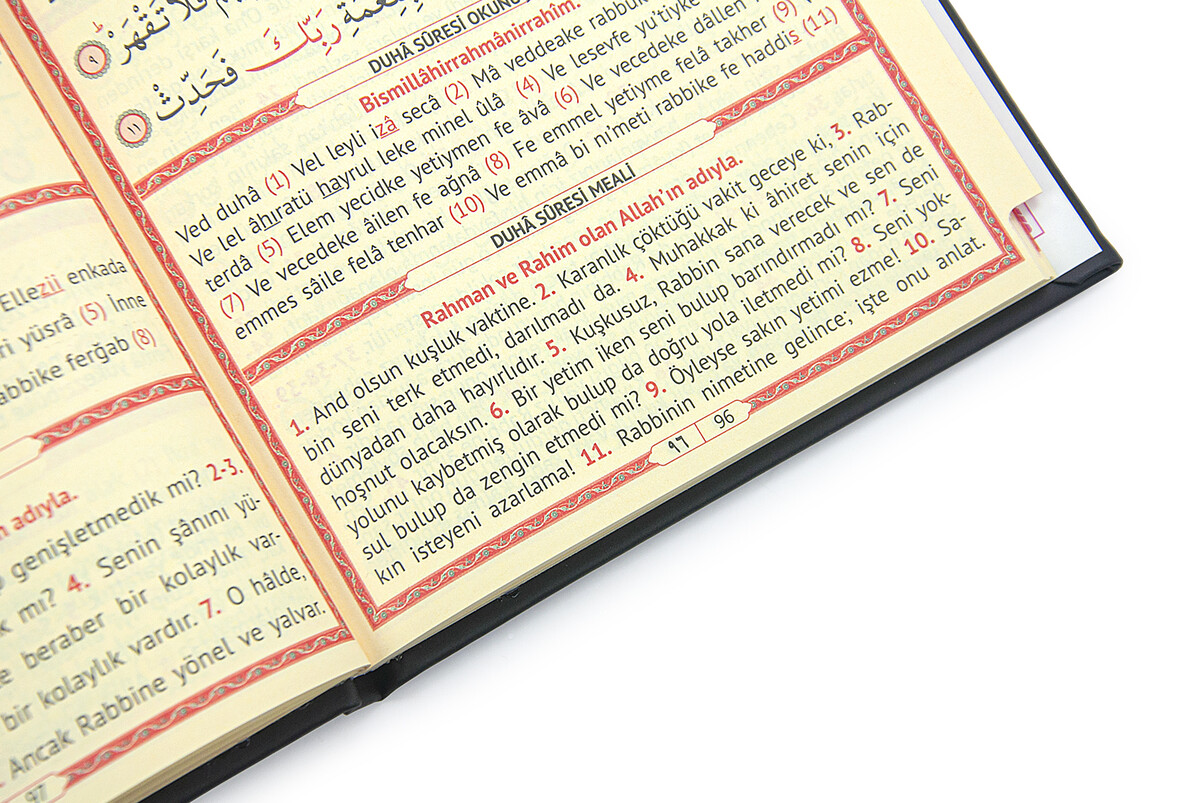 فَلَا تَقْهَرْ ﴿٩﴾
بِنِعْمَةِ رَبِّكَ فَحَدِّثْ ﴿١١﴾
DUHÂ SÛRESİ OKUNU
Bismillâhirrahmânirrahîm.
Ved duhâ (1) Vel leyli izâ secâ (2) Mâ veddeake rabbük
Ve lel âhıratü hayrul leke minel ûlâ (4) Ve lesevfe yu'tiyke
terdâ (5) Elem yecidke yetiymen fe âvâ (6) Ve vecedeke dâllen
(7) Ve vecedeke âilen fe ağnâ (8) Fe emmel yetiyme felâ takher (9)
emmes sâile felâ tenhar (10) Ve emmâ bi ni'meti rabbike fe haddis (11)
DUHÂ SÛRESİ MEALİ
Rahman ve Rahim olan Allah'ın adıyla.
1. And olsun kuşluk vaktine. 2. Karanlık çöktüğü vakit geceye ki, 3. Rab-
bin seni terk etmedi, darılmadı da. 4. Muhakkak ki âhiret senin için
dünyadan daha hayırlıdır. 5. Kuşkusuz, Rabbin sana verecek ve sen de
hoşnut olacaksın. 6. Bir yetim iken seni bulup barındırmadı mı? 7. Seni
yolunu kaybetmiş olarak bulup da doğru yola iletmedi mi? 8. Seni yok-
sul bulup da zengin etmedi mi? 9. Öyleyse sakın yetimi ezme! 10. Sa-
kın isteyeni azarlama! 11. Rabbinin nimetine gelince; işte onu anlat.
٩٦ | 96
Ellezii enkada
ri yüsrâ (5) İnne
abbike ferğab (8)
n adıyla.
genişletmedik mi? 2-3.
k mı? 4. Senin şânını yü-
e beraber bir kolaylık var-
bir kolaylık vardır. 7. O hâlde,
Ancak Rabbine yönel ve yalvar.
97